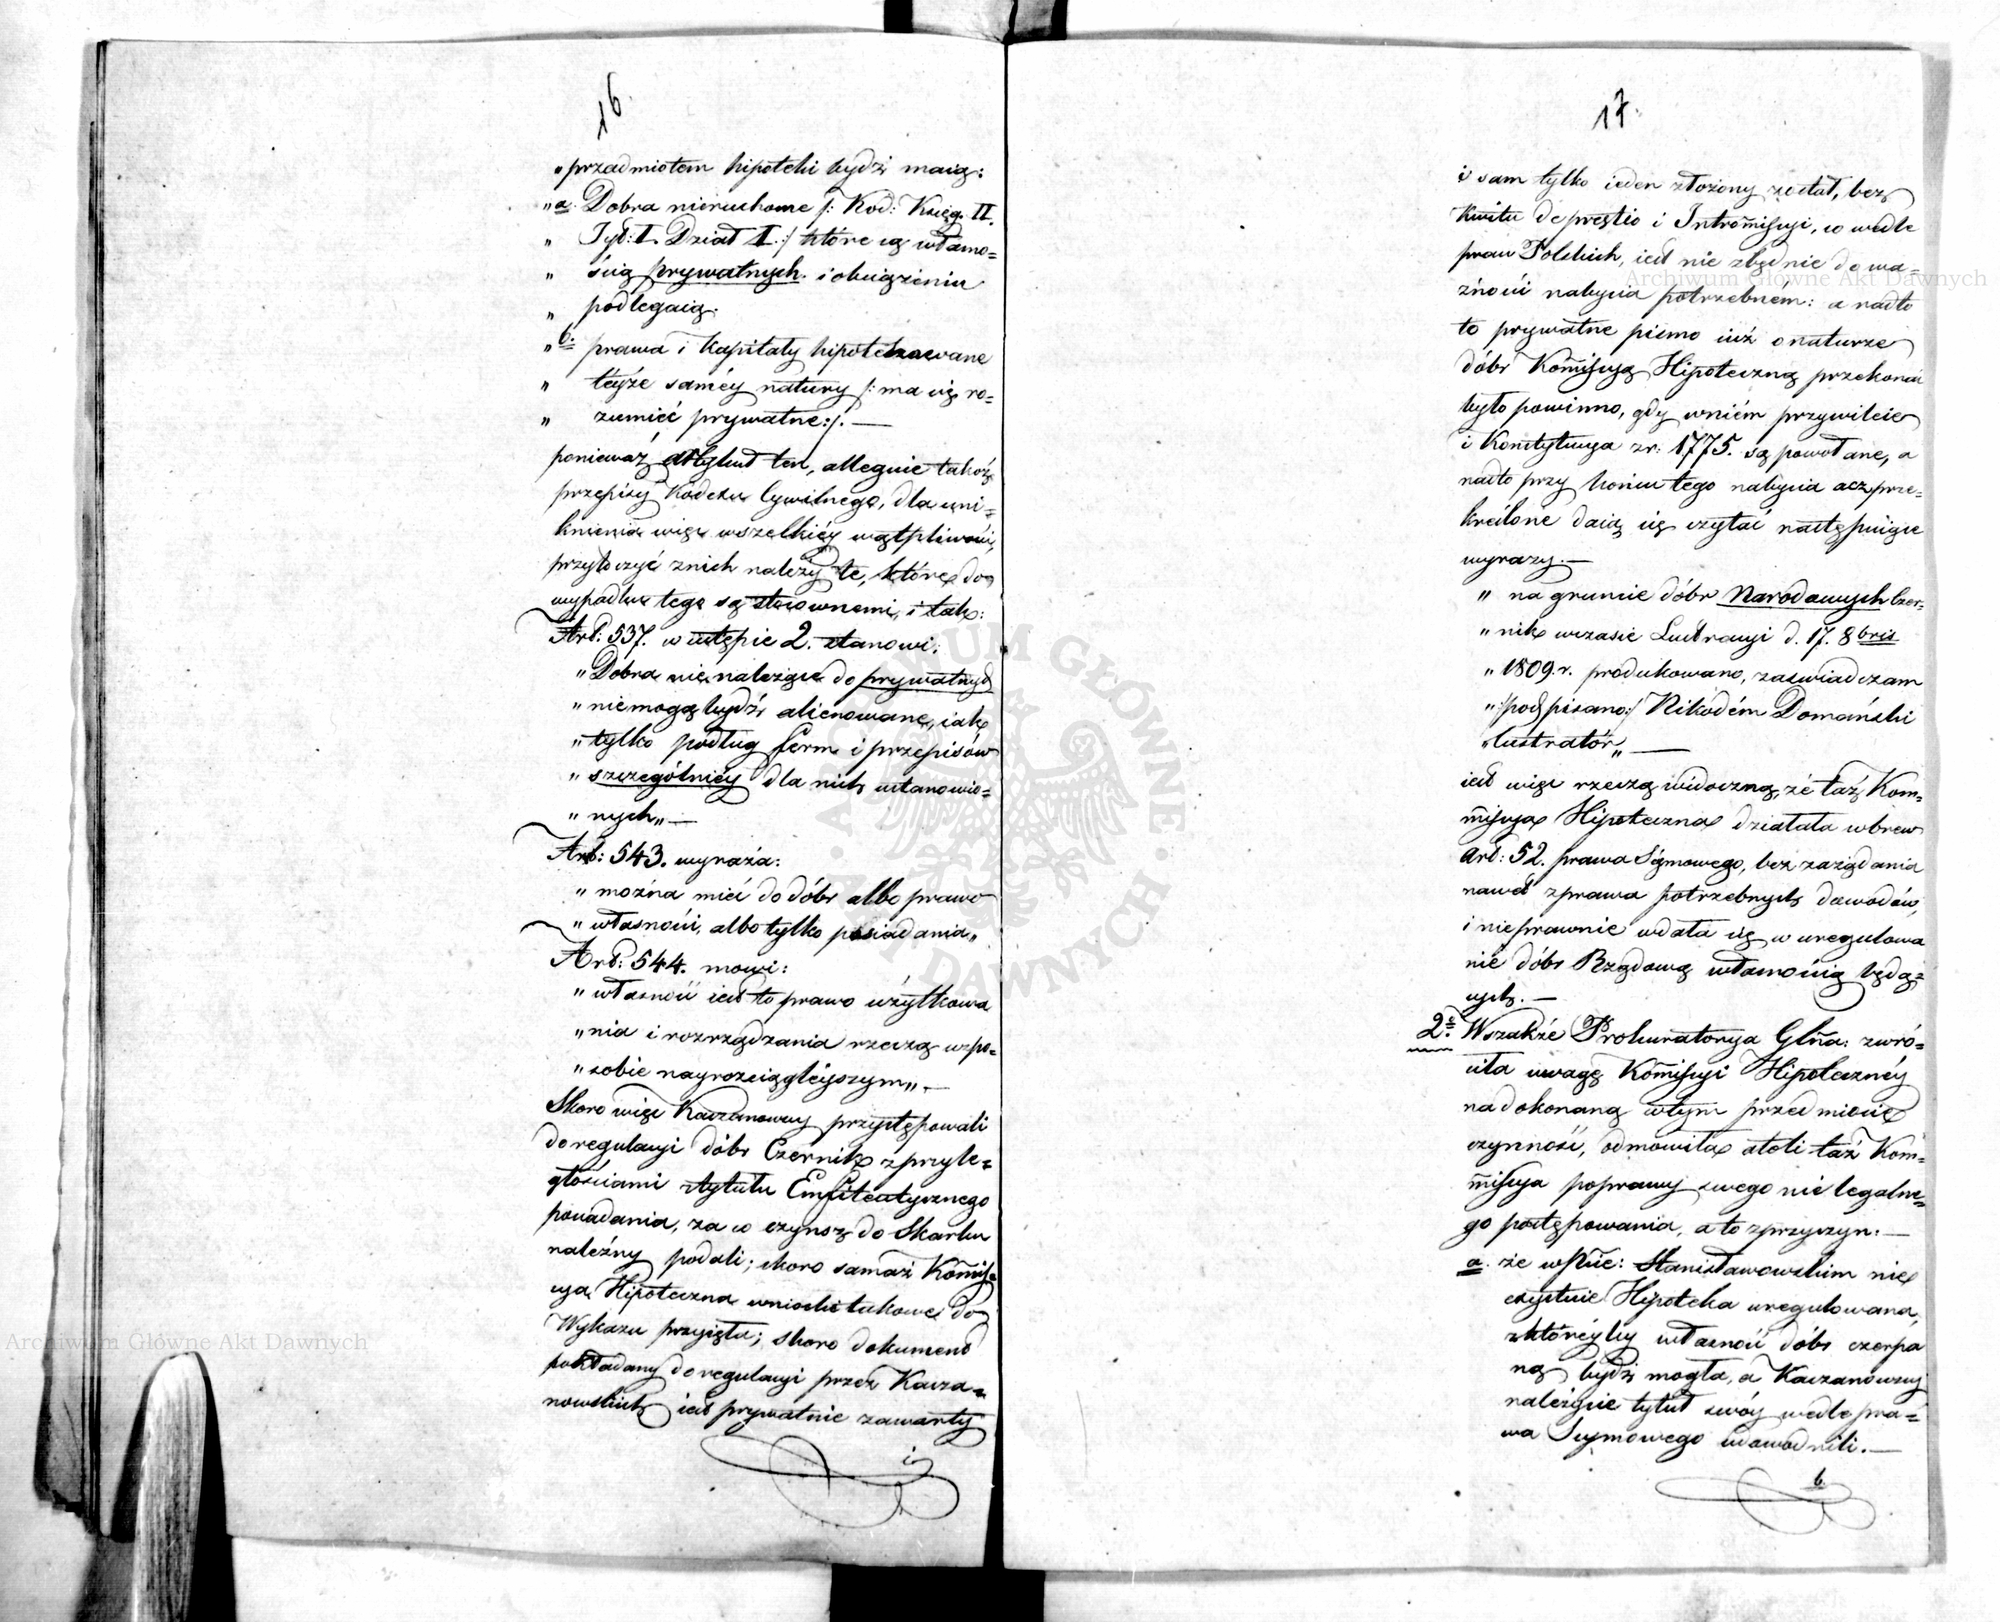 16.
„przedmiotem hipoteki bydź maią:
„a. Dobra nieruchome /: Kod: Księga II.
„ Tyt: I. Dział I. :/ które są własno=
„ ścią prywatnych i obciążeniu
„ podlegaią.
„b. prawa i kapitały hipotekowane
„ teyże saméy natury /: ma się ro=
„ zumieć prywatne:/. —
ponieważ artykuł ten, alleguie takoż
przepisy Kodexu Cywilnego, dla uni=
knienia więc wszelkiéy wątpliwości,
przytoczyć z nich należy te, które do
wypadku tego są stosownemi, i tak:
Art: 537. w ustępie 2. stanowi:
„Dobra nie należące do prywatnych
„niemogą bydź alienowane, iak
„tylko podług form i przepisów
„szczególniéy dla nich ustanowio=
„nych„ —
Art: 543. wyraża:
„można mieć do dóbr albo prawo
„własności, albo tylko posiadania„
Art: 544. mowi:
„własność iest to prawo użytkowa
„nia i rozrządzania rzeczą w spo=
„sobie nayrozciągleyszym„ —
Skoro więc Kaczanowscy przystępowali
do regulacyi dóbr Czernik z przyle=
głościami z tytułu Emfiteatycznego
posiadania, za co czynsz do Skarbu
należny podali; skoro samaż Kom̃is=
sya Hipoteczna wnioski takowe do
Wykazu przyięła; skoro dokument
pokładany do regulacyi przez Kacza=
nowskich iest prywatnie zawarty
i
17.
i sam tylko ieden złożony został, bez
kwitu de pretio i Intromissyi, co wedle
praw Polskich, iest nie zbędnie do wa=
żności nabycia potrzebném: a nadto
to prywatne pismo iuż o naturze
dóbr Kom̃issyą Hipoteczną przekonać
było powinno, gdy w niém przywileie
i Konstytucya z r: 1775. są powołane, a
nadto przy końcu tego nabycia acz prze=
kreślone daią się czytać następuiące
wyrazy. —
„ na gruncie dóbr Narodowych Czer=
„ nik w czasie Lustracyi d. 17. 8bris
„ 1809. r. produkowano, zaświadczam
„ /podpisano:/ Nikodém Domański
„Lustratór„ —
iest więc rzeczą widoczną, że taż Kom=
m̃issya Hipoteczna działała wbrew
Art: 52. prawa Séymowego, bez zażądania
nawet z prawa potrzebnych dowodów,
i nieprawnie wdała się w uregulowa
nie dóbr Rządową własnością będą=
cych. —
2e. Wszakże Prokuratorya Glña: zwró=
ciła uwagę Kom̃issyi Hipotecznéy
na dokonaną w tym przedmiocie
czynność, odmowiła atoli taż Kom=
m̃issya poprawy swego nie legalne=
go postępowania, a to z przyczyn: —
a. że w Pcie: Stanisławowskim nie
exystuie Hipoteka uregulowana,
z któréyby własność dóbr czerpa
ną bydź mogła, a Kaczanowscy
należycie tytuł swóy wedle pra=
wa Seymowego udowodnili. —
b.
Archiwum Główne Akt Dawnych
Archiwum Główne Akt Dawnych
ARCHIWUM GŁÓWNE · AKT DAWNYCH ·